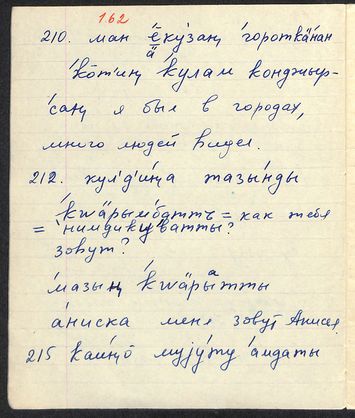 162
210. ман ӫкузаң гороткӓнан
ко̄т'иң кулам конджыр-
саң я был в городах,
много людей видел.
212. кул'д'иңа тазынды
кwӓрымбдттъ = как тебя
= нимдикуватты?
зовут?
мазың кwӓрытты
аниска меня зовут Анисья
215 каиңо̄ мујуту андаты